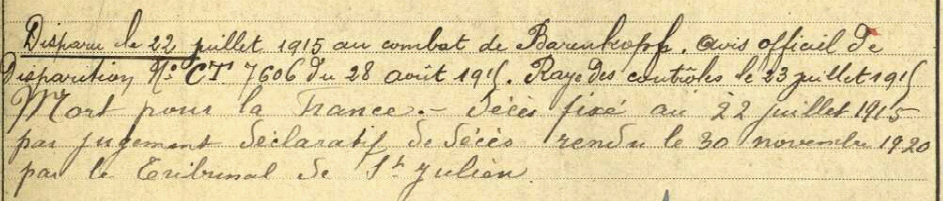 Disparu le 22 juillet 1915 au combat de Barenkopf. avis officiel de
Disparition No CT 7606 du 28 août 1915. Rayé des contrôles le 23 juillet 1915
Mort pour la France. - Décès fixé au 22 juillet 1915
par jugement déclaratif de décès rendu le 30 novembre 1920
par le Tribunal de St Julien